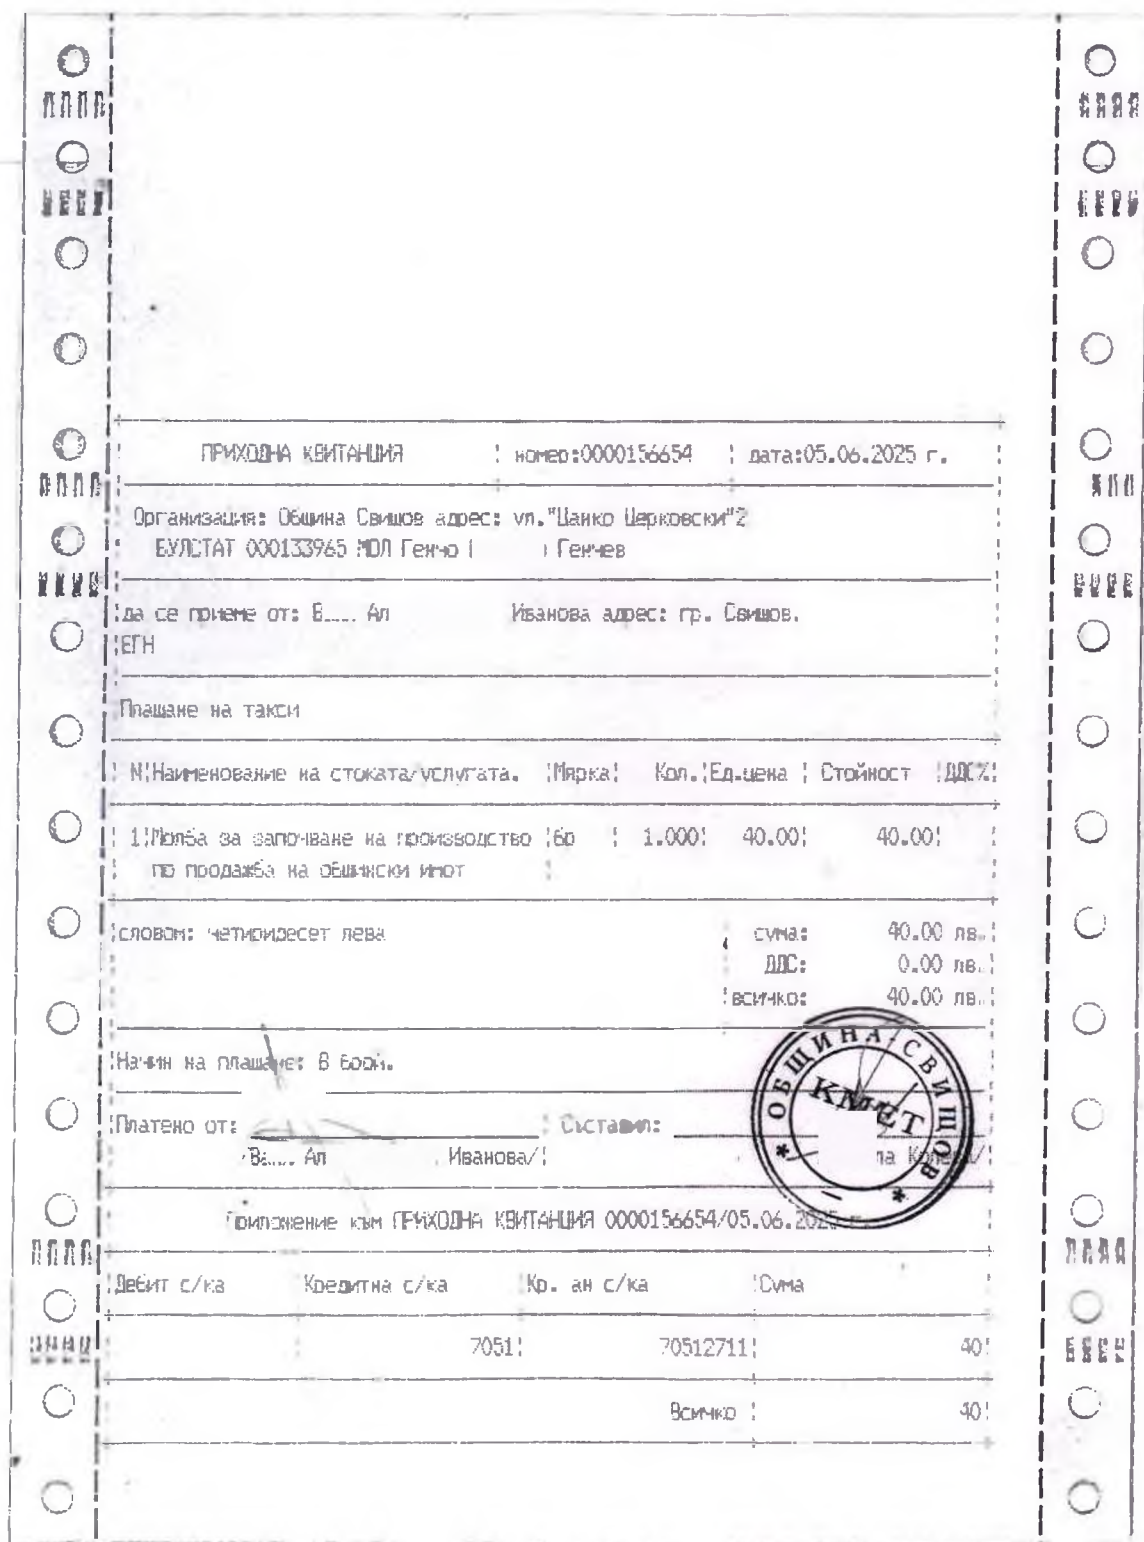 ПРИХОДНА КВИТАНЦИЯ номер:0000156654 дата:05.06.2025 г.
Организация: Община Свищов адрес: ул."Цанко Церковски"2
БУЛСТАТ 000133965 МОЛ Генчо Генчев
да се приеме от: В.... Ал Иванова адрес: гр. Свищов.
ЕГН
Плащане на такси
N Наименование на стоката/услугата. Мярка Кол. Ед.цена Стойност ДДС%
1 Молба за започване на производство бр 1.000 40.00 40.00
по продажба на общински имот
словом: четиридесет лева сума: 40.00 лв.
ДДС: 0.00 лв.
всичко: 40.00 лв.
Начин на плащане: В брой.
Платено от: Съставил:
/Ва.... Ал Иванова/ ла Колева/
* ОБЩИНА СВИЩОВ *
КМЕТ
Приложение към ПРИХОДНА КВИТАНЦИЯ 0000156654/05.06.2025 г.
Дебит с/ка Кредитна с/ка Кр. ан с/ка Сума
7051 70512711 40
Всичко 40